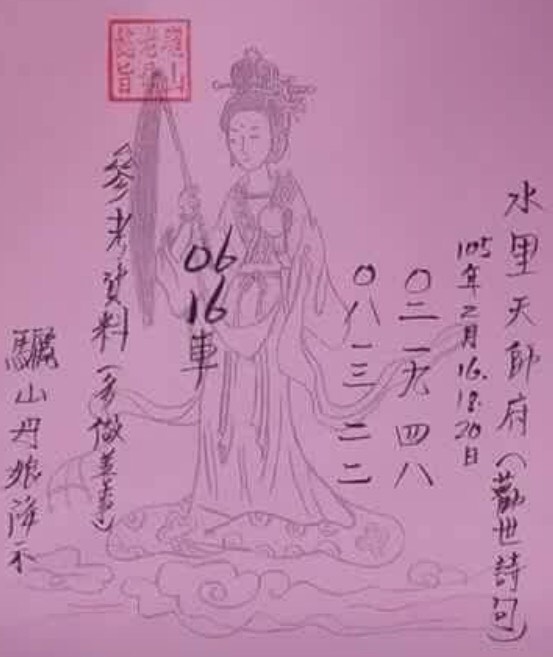 水里天師府(勸世詩句)
105年2月16.18.20日
〇二 一九 四八
〇八 一三 二二
06
16
車
驪山
老母
懿旨
參考資料(多做善事)
驪山丹娘降示